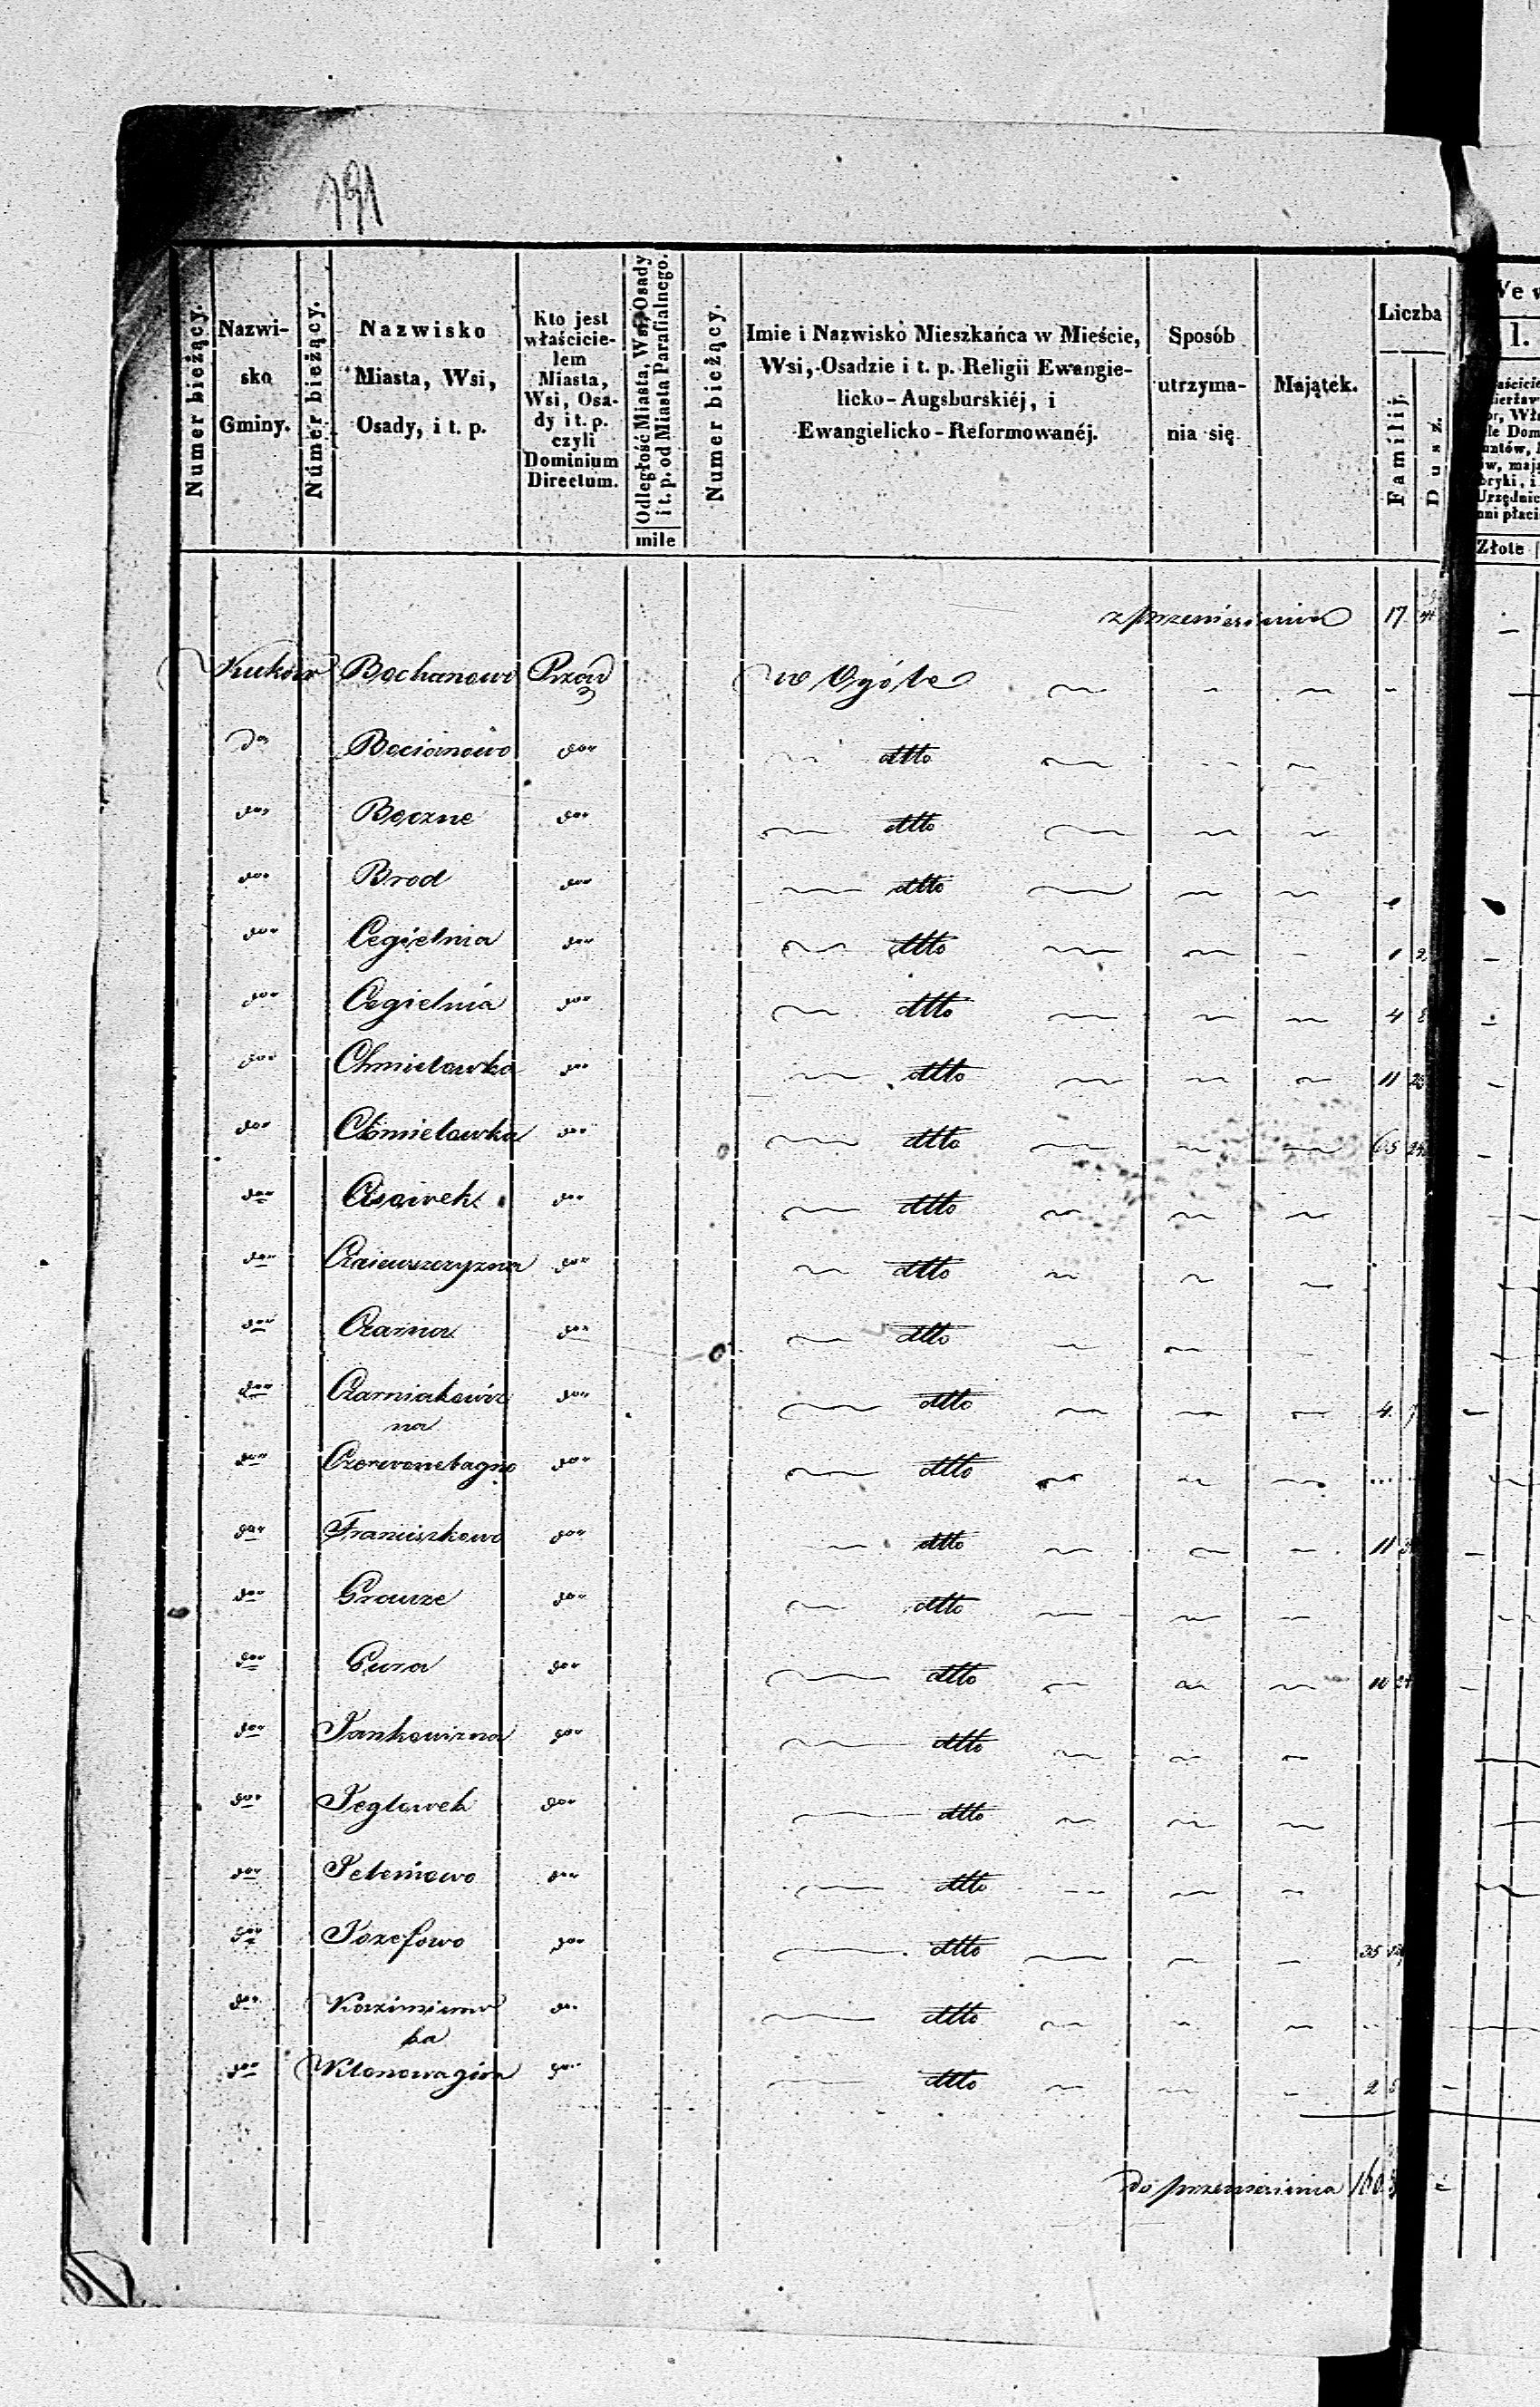 191
Numer bieżący.
Nazwi-
sko
Gminy.
Numer bieżący.
Nazwisko
Miasta, Wsi,
Osady, i t. p.
Kto jest
właścicie-
lem
Miasta,
Wsi, Osa-
dy i t. p.
czyli
Dominium
Directum.
Odległość Miasta, Wsi, Osady
i t. p. od Miasta Parafialnego.
mile
Numer bieżący.
Imie i Nazwisko Mieszkańca w Mieście,
Wsi, Osadzie i t. p. Religii Ewangie-
licko-Augsburskiéj, i
Ewangielicko-Reformowanéj.
Sposób
utrzyma-
nia się
Majątek.
Liczba
Familij.
Dusz.
1.
Złote
z przeniesienia 17
Kuków Bochanowo Rząd w Ogóle
do Bocianowo don dtto
don Boczne don dtto
don Brod don dtto
don Cegielnia don dtto 1 2
don Cegielnia don dtto 4 8
don Chmielowka don dtto 11
don Chmielowka don dtto 65
don Cisowek don dtto
don Czaiewszczyzna don dtto
don Czarna don dtto
don Czarniakowiz
na don dtto 4
don Czerwonebagno don dtto
don Franciszkowo don dtto 11
don Grauze don dtto
don Gura don dtto 10
don Jankowizna don dtto
don Jeglowek don dtto
don Jeleniowo don dtto
don Jozefowo don dtto 35
don Kazimierow
ka don dtto
don Klonowagóra don dtto 2
do przeniesienia 160